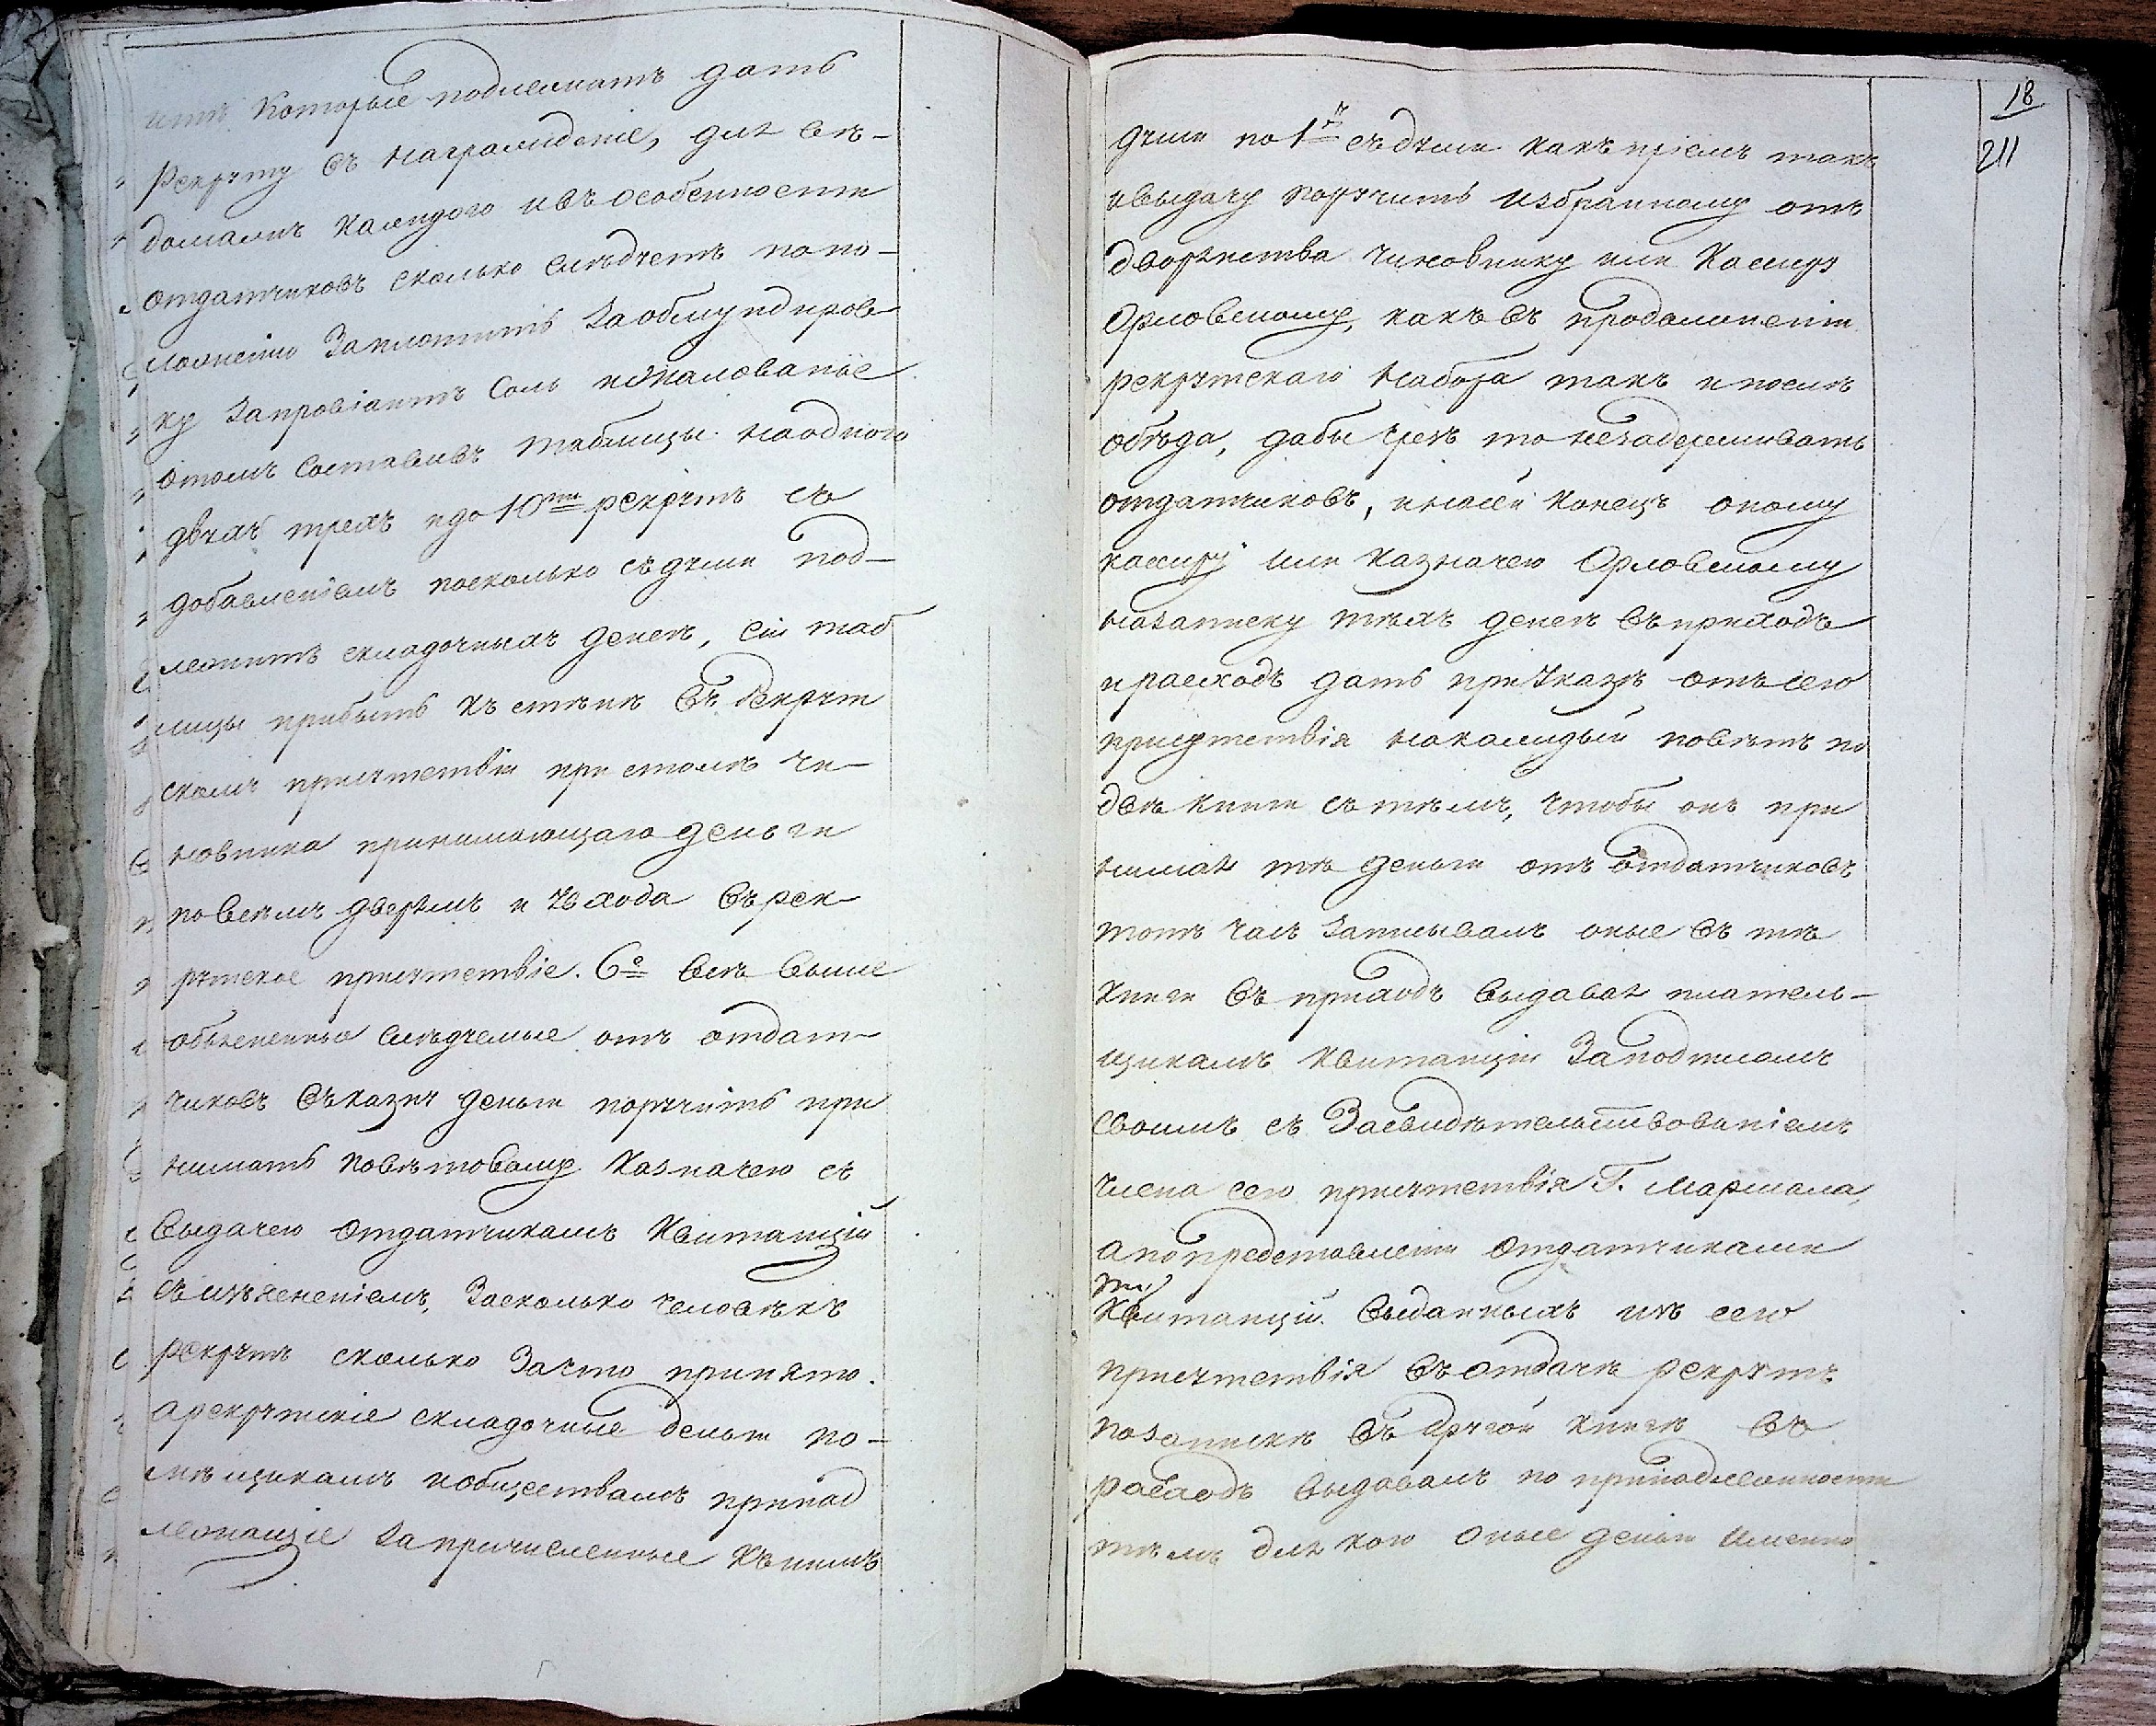 итъ Которые подлежатъ дать
Рекруту въ награжденіе, для вѣ-
домамъ Каждого ивъ особенности
отдатчиковъ сколько слѣдуетъ попо-
ложенію Заплотить Заобмундиров
ку Запровіантъ Соль ижалованье
отомъ Составивъ таблицы наодного
двухъ трехъ идо 10ти рекрутъ съ
добавленіемъ посколько съ души под-
лежитъ складочныхъ денегъ, сіи таб
лицы прибыть къ стѣнѣ въ рекрут
скомъ присутствіи при столѣ чи-
новника принимающаго деньги
повсемъ дверямъ и Ухода въ рек
рутское присутствіе. 6е всѣ выше
объясненныя слѣдуемые отъ отдат
чиковъ въказну деньги поручить при
нимать повѣтовому Казначею съ
выдачею отдатчикамъ Квитанцій
съ изъясненіемъ, Засколько человѣкъ
рекрутъ сколько Зачто принято.
арекрутскіе складочные деньги по-
мѣщикамъ иобществамъ принад
лежащіе запричисленные Къ нимъ
души по 1й съ души какъ пріемъ такъ
ивыдачу поручить избранному отъ
дворянства чиновнику или Касиру
Орловскому, какъ въ продолженіи
рекрутскаго набора такъ и после
обѣда, дабы чрезъ то незадерживать
отдатчиковъ, и насей конецъ оному
кассиру или казначею Орловскому
назаписку тѣхъ денегъ въ приходъ
и расходъ дать при Указѣ отъ сего
присутствія накаждый повѣтъ по
двѣ книги съ тѣмъ, чтобы онъ при
нимая тѣ деньги отъ отдатчиковъ
тотъ часъ записывалъ оные въ тѣ
книги въ приходъ выдавая платель-
щикамъ квитанціи За подписомъ
своимъ съ Засвидѣтельствованіемъ
члена сего присутствія Г. Маршала,
а по представленіи отдатчиками
ту
Квитанцій выданныхъ изъ сего
присутствія въ отдачѣ рекрутъ
позапискѣ въ другой книгѣ въ
расходъ выдавалъ по принадлежности
тѣмъ для кого оные деньги именно
18
211